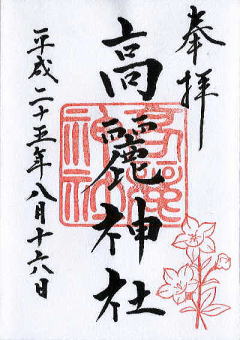 奉拝
高麗神社
高麗神社
平成二十五年八月十六日